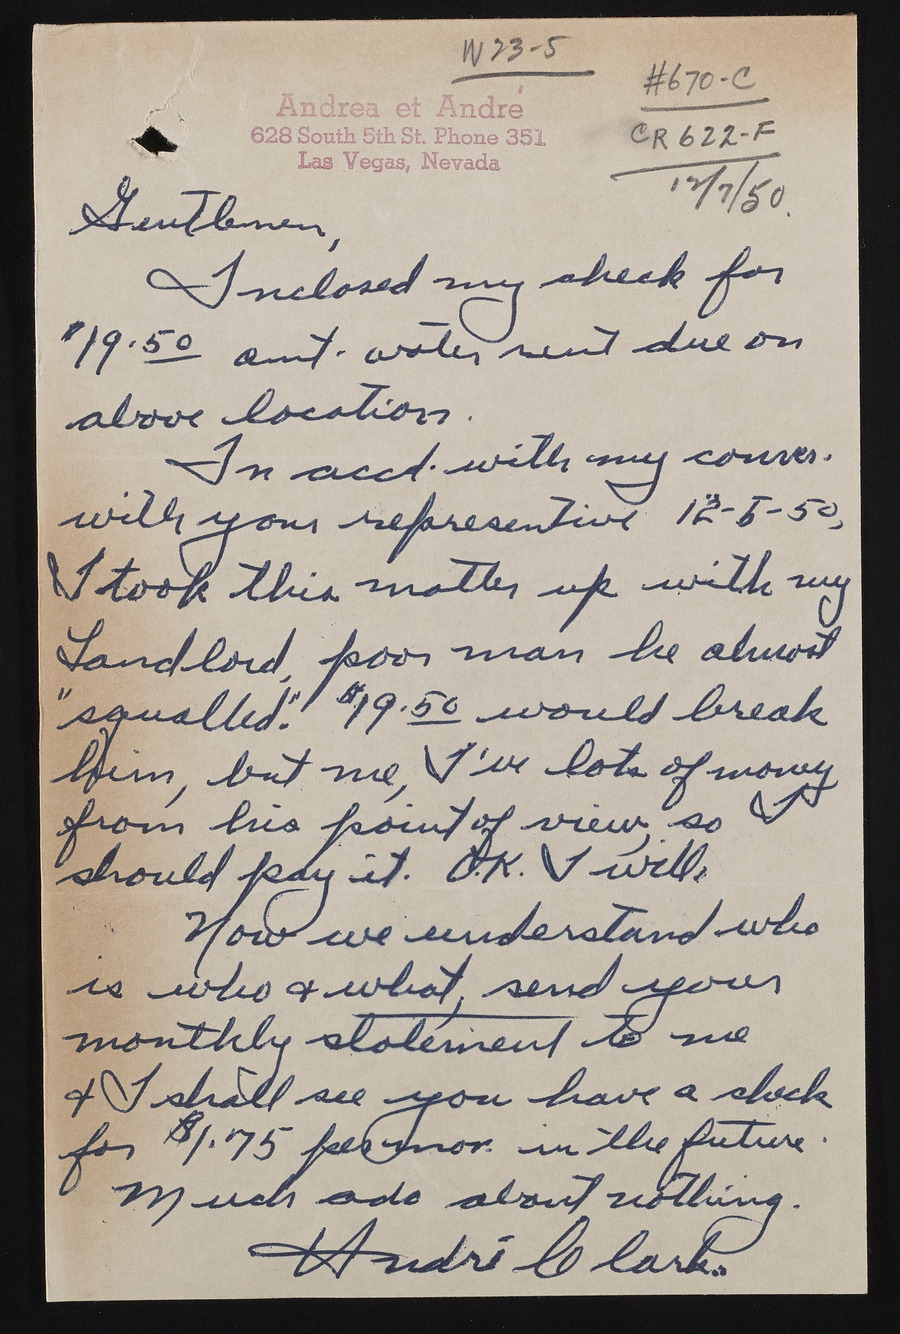 W23-5
#670-C
CR 622-F
12/7/50.
Andrea et André
628 South 5th St. Phone 351
Las Vegas, Nevada
Gentlemen,
Inclosed my check for
$19.50 amt. water rent due on
above location.
In accd. with my conver.
with your representive 12-5-50,
I took this matter up with my
Landlord, poor man he almost
"squalled". $19.50 would break
him, but me, I've lots of money
from his point of view, so I
should pay it. O.K. I will.
Now we understand who
is who & what, send your
monthly statement to me
& I shall see you have a check
for $1.75 per mon. in the future.
Much ado about nothing.
André Clark.